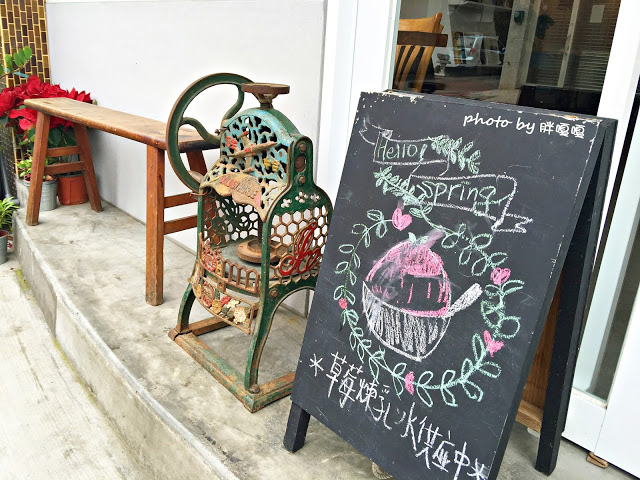 photo by 胖嘎嘎
Hello
spring
*草莓煉乳冰供應中*
Ice